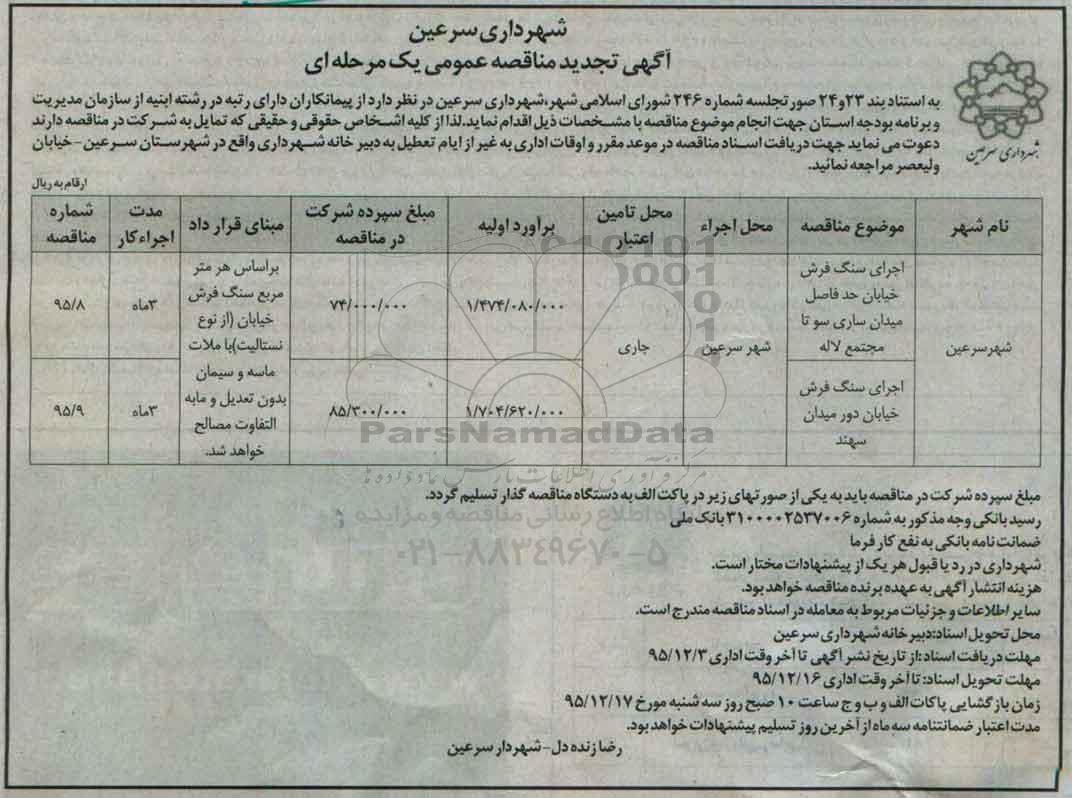 شهرداری سرعین
آگهی تجدید مناقصه عمومی یک مرحله ای
شهرداری سرعین
به استناد بند ۲۳و۲۴ صورتجلسه شماره ۲۴۶ شورای اسلامی شهر،شهرداری سرعین در نظر دارد از پیمانکاران دارای رتبه در رشته ابنیه از سازمان مدیریت
و برنامه بودجه استان جهت انجام موضوع مناقصه با مشخصات ذیل اقدام نماید.لذا از کلیه اشخاص حقوقی و حقیقی که تمایل به شرکت در مناقصه دارند
دعوت می نماید جهت دریافت اسناد مناقصه در موعد مقرر و اوقات اداری به غیر از ایام تعطیل به دبیر خانه شهرداری واقع در شهرستان سرعین-خیابان
ولیعصر مراجعه نمائید.
ارقام به ریال
نام شهر
موضوع مناقصه
محل اجراء
محل تامین
اعتبار
برآورد اولیه
مبلغ سپرده شرکت
در مناقصه
مبنای قرار داد
مدت
اجراءکار
شماره
مناقصه
شهرسرعین
اجرای سنگ فرش
خیابان حد فاصل
میدان ساری سو تا
مجتمع لاله
شهر سرعین
جاری
۱/۴۷۴/۰۸۰/۰۰۰
۷۴/۰۰۰/۰۰۰
براساس هر متر
مربع سنگ فرش
خیابان (از نوع
نستالیت)با ملات
ماسه و سیمان
بدون تعدیل و مابه
التفاوت مصالح
خواهد شد.
۳ماه
۹۵/۸
اجرای سنگ فرش
خیابان دور میدان
سهند
۱/۷۰۴/۶۲۰/۰۰۰
۸۵/۳۰۰/۰۰۰
۳ماه
۹۵/۹
ParsNamadData
مرکز فرآوری اطلاعات پارس نماد داده ها
مبلغ سپرده شرکت در مناقصه باید به یکی از صورتهای زیر در پاکت الف به دستگاه مناقصه گذار تسلیم گردد.
رسید بانکی وجه مذکور به شماره ۳۱۰۰۰۰۲۵۳۷۰۰۶ بانک ملی
اطلاع رسانی مناقصه و مزایده
ضمانت نامه بانکی به نفع کارفرما
۰۲۱-۸۸۳۴۹۶۷۰-۵
شهرداری در رد یا قبول هر یک از پیشنهادات مختار است.
هزینه انتشار آگهی به عهده برنده مناقصه خواهد بود.
سایر اطلاعات و جزئیات مربوط به معامله در اسناد مناقصه مندرج است.
محل تحویل اسناد:دبیرخانه شهرداری سرعین
مهلت دریافت اسناد :از تاریخ نشر آگهی تا آخر وقت اداری ۹۵/۱۲/۳
مهلت تحویل اسناد: تا آخر وقت اداری ۹۵/۱۲/۱۶
زمان بازگشایی پاکات الف و ب و ج ساعت ۱۰ صبح روز سه شنبه مورخ ۹۵/۱۲/۱۷
مدت اعتبار ضمانتنامه سه ماه از آخرین روز تسلیم پیشنهادات خواهد بود.
رضا زنده دل-شهردار سرعین